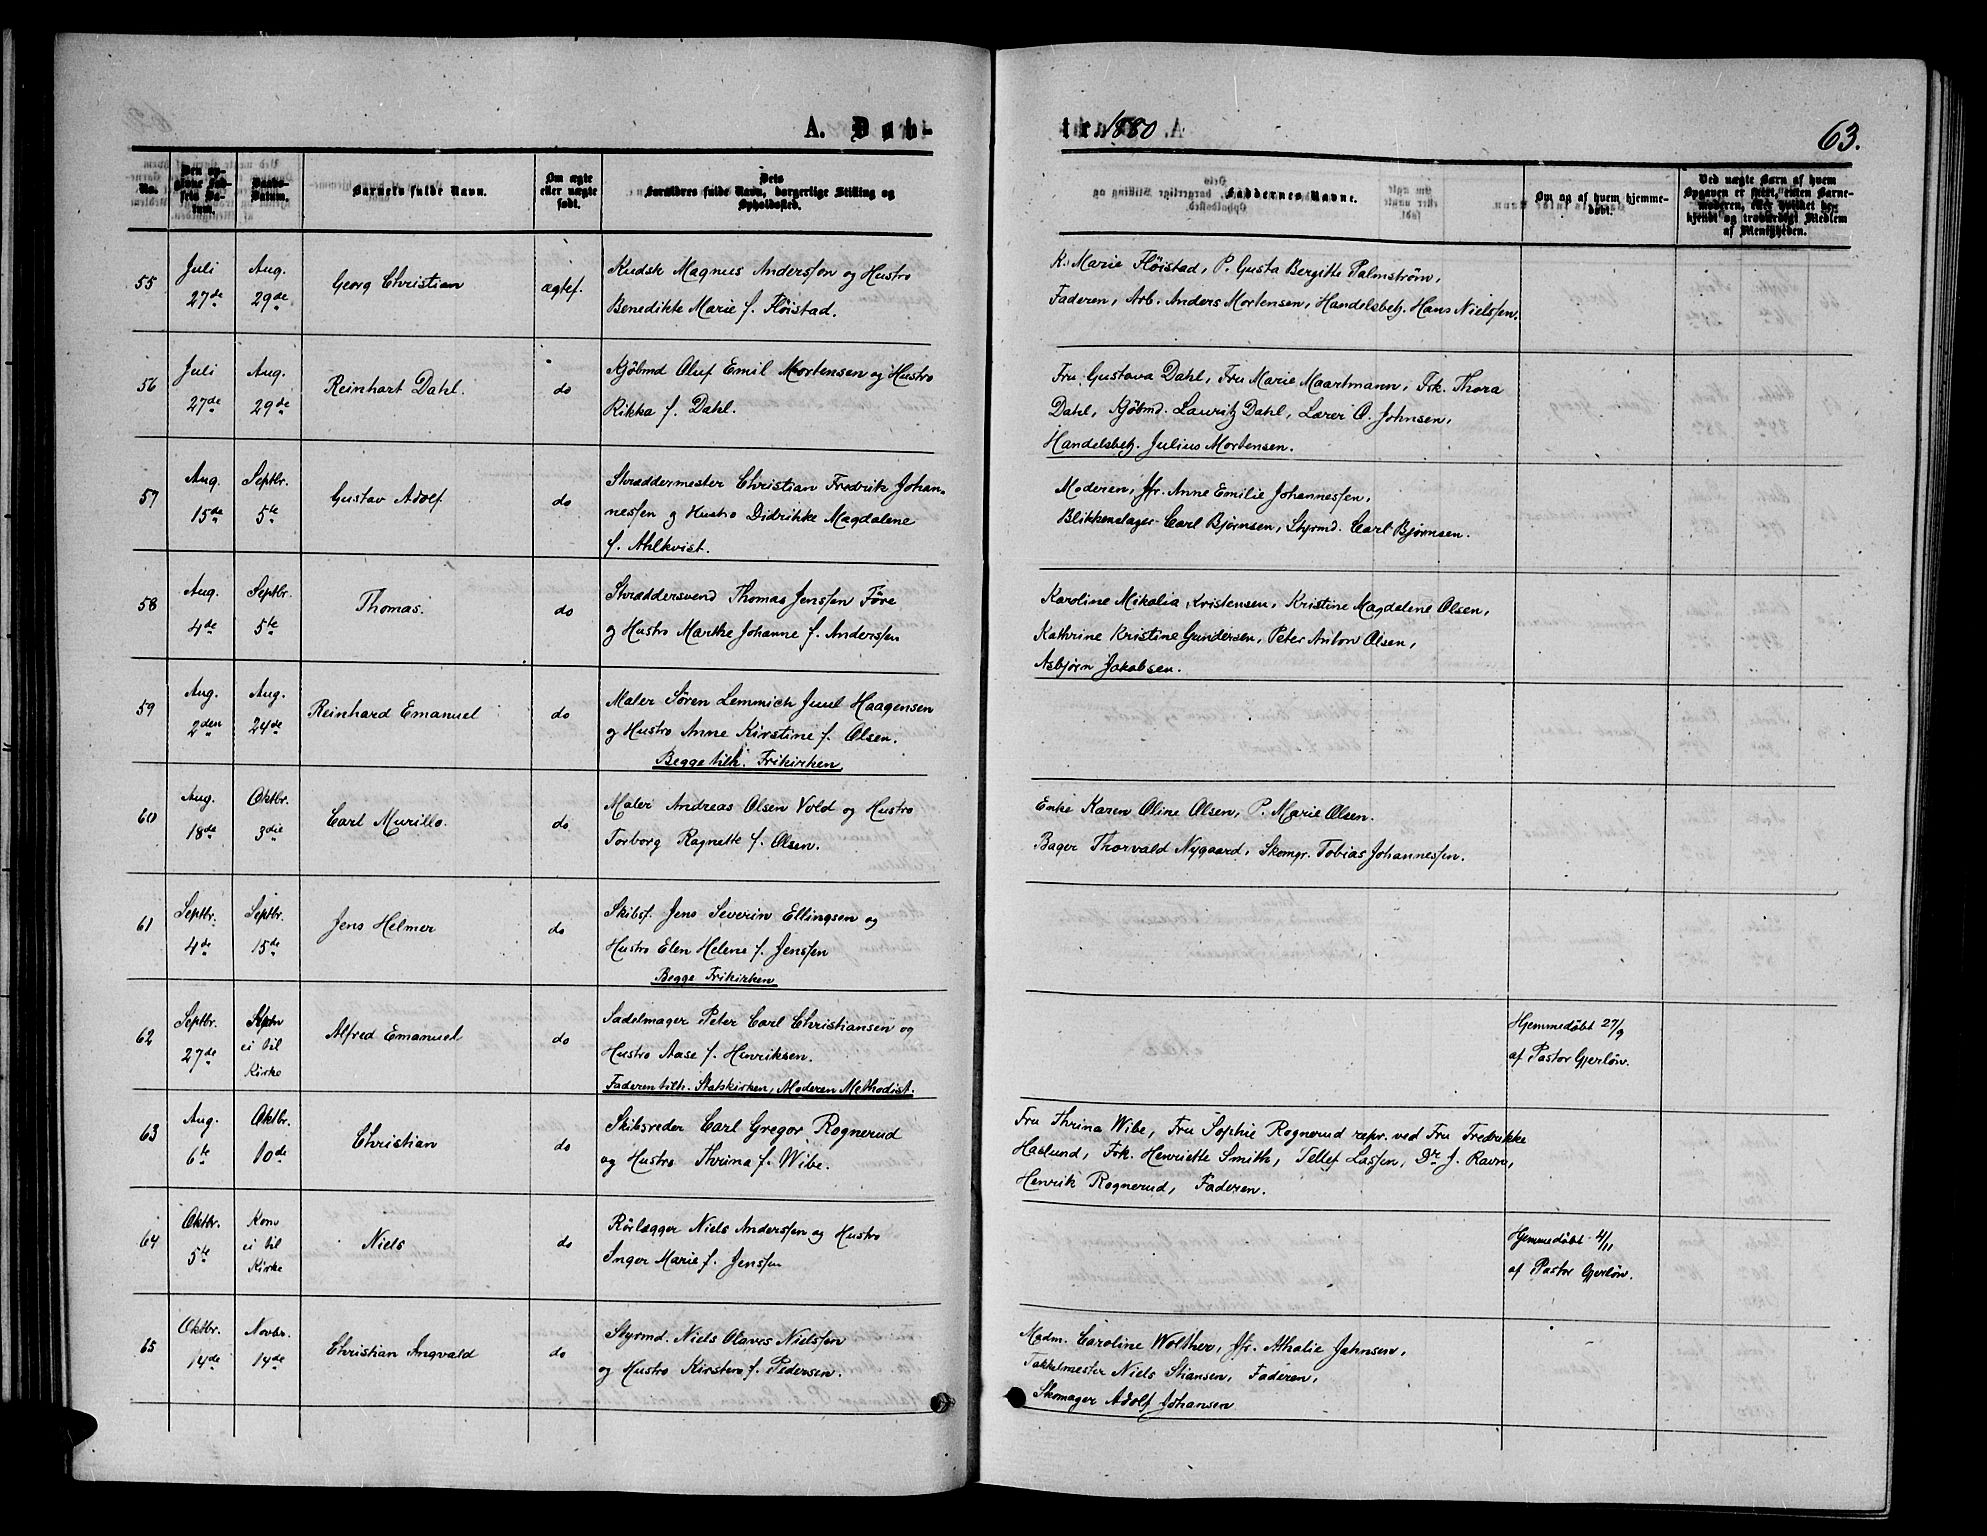 A. Døb-
tr. 1880
63.
No.
Den opgivne Fødsels Datum.
Daabs-Datum.
Barnets fulde Navn.
Om ægte eller uægte født.
Dets Forældres fulde Navn, borgerlige Stilling og Opholdssted.
Faddernes Navne.
Om og af hvem hjemmedøbt.
Ved uægte Børn af hvem Opgaven er skeet, enten Barnemoderen, eller hvilket bekjendt og troværdigt Medlem af Menigheden.
55
Juli 27de
Aug. 29de
Georg Christian
ægtef.
Kudsk Magnus Anderssen og Hustro
Benedikte Marie f. Fløistad.
K. Marie Fløistad, P. Gusta Bergitte Palmstrøm,
Faderen, Arb. Anders Mortensen, Handelsbetj. Hans Nielssen.
56
Juli 27de
Aug. 29de
Reinhart Dahl.
do
Kjøbmd Oluf Emil Mortensen og Hustro
Rikka f. Dahl.
Fru Gustava Dahl, Fru Marie Maartmann, Frk. Thora
Dahl, Kjøbmd. Lauritz Dahl, Lærer O. Johnsen,
Handelsbetj. Julius Mortensen.
57
Aug. 15de
Septbr. 5te
Gustav Adolf
do
Skræddermester Christian Fredrik Johan-
nessen og Hustro Didrikke Magdalene
f. Ahlkvist.
Moderen, Jfr. Anne Emilie Johannessen,
Blikkenslager Carl Bjørnsen, Styrmd. Carl Bjørnsen.
58
Aug. 4de
Septbr. 5te
Thomas.
do
Skræddersvend Thomas Jenssen Føre
og Hustro Marthe Johanne f. Anderssen
Karoline Mikalia Kristensen, Kristine Magdalene Olsen,
Kathrine Kristine Gundersen, Peter Anton Olsen,
Asbjørn Jakobsen.
59
Aug. 2den
Aug. 24de
Reinhard Emanuel
do
Maler Søren Lemmich Juul Haagensen
og Hustro Anne Kirstine f. Olsen.
Begge tilh. Frikirken
60
Aug. 18de
Oktbr. 3die
Carl Murillo.
do
Maler Andreas Olsen Vold og Hustro
Torborg Ragnette f. Olsen.
Enke Karen Oline Olsen, P. Marie Olsen.
Bager Thorvald Nygaard, Skomgr. Tobias Johannessen.
61
Septbr. 4de
Septbr. 15de
Jens Helmer
do
Skibsf. Jens Severin Ellingsen og
Hustro Elen Helene f. Jenssen
Begge Frikirken
62
Septbr. 27de
ei til
Kirke
Alfred Emanuel
do
Sadelmager Peter Carl Christiansen og
Hustro Aase f. Henriksen.
Faderen tilh. Statskirken, Moderen Methodist.
Hjemmedøbt 27/9
af Pastor Gjerløw.
63
Aug. 6te
Oktbr. 10de
Christian
do
Skibsreder Carl Gregor Rognerud
og Hustro Thrina f. Wibe.
Fru Thrina Wibe, Fru Sophie Rognerud repr. ved Fru Fredrikke
Haslund, Frk. Henriette Smith, Tellef Lassen, Dr. J. Ravn,
Henrik Rognerud, Faderen.
64
Oktbr. 5te
Kom
ei til
Kirke
Niels
do
Rørlægger Niels Anderssen og Hustro
Inger Marie f. Jenssen
Hjemmedøbt 4/11
af Pastor Gjerløw.
65
Oktbr. 14de
Novbr. 14de
Christian Ingvald
do
Styrmd. Niels Olaves Nielssen
og Hustro Kirsten f. Pedersen.
Madm. Caroline Wolther, Jfr. Athalie Jahnsen,
Takkelmester Niels Stiansen, Faderen,
Skomager Adolf Johansen